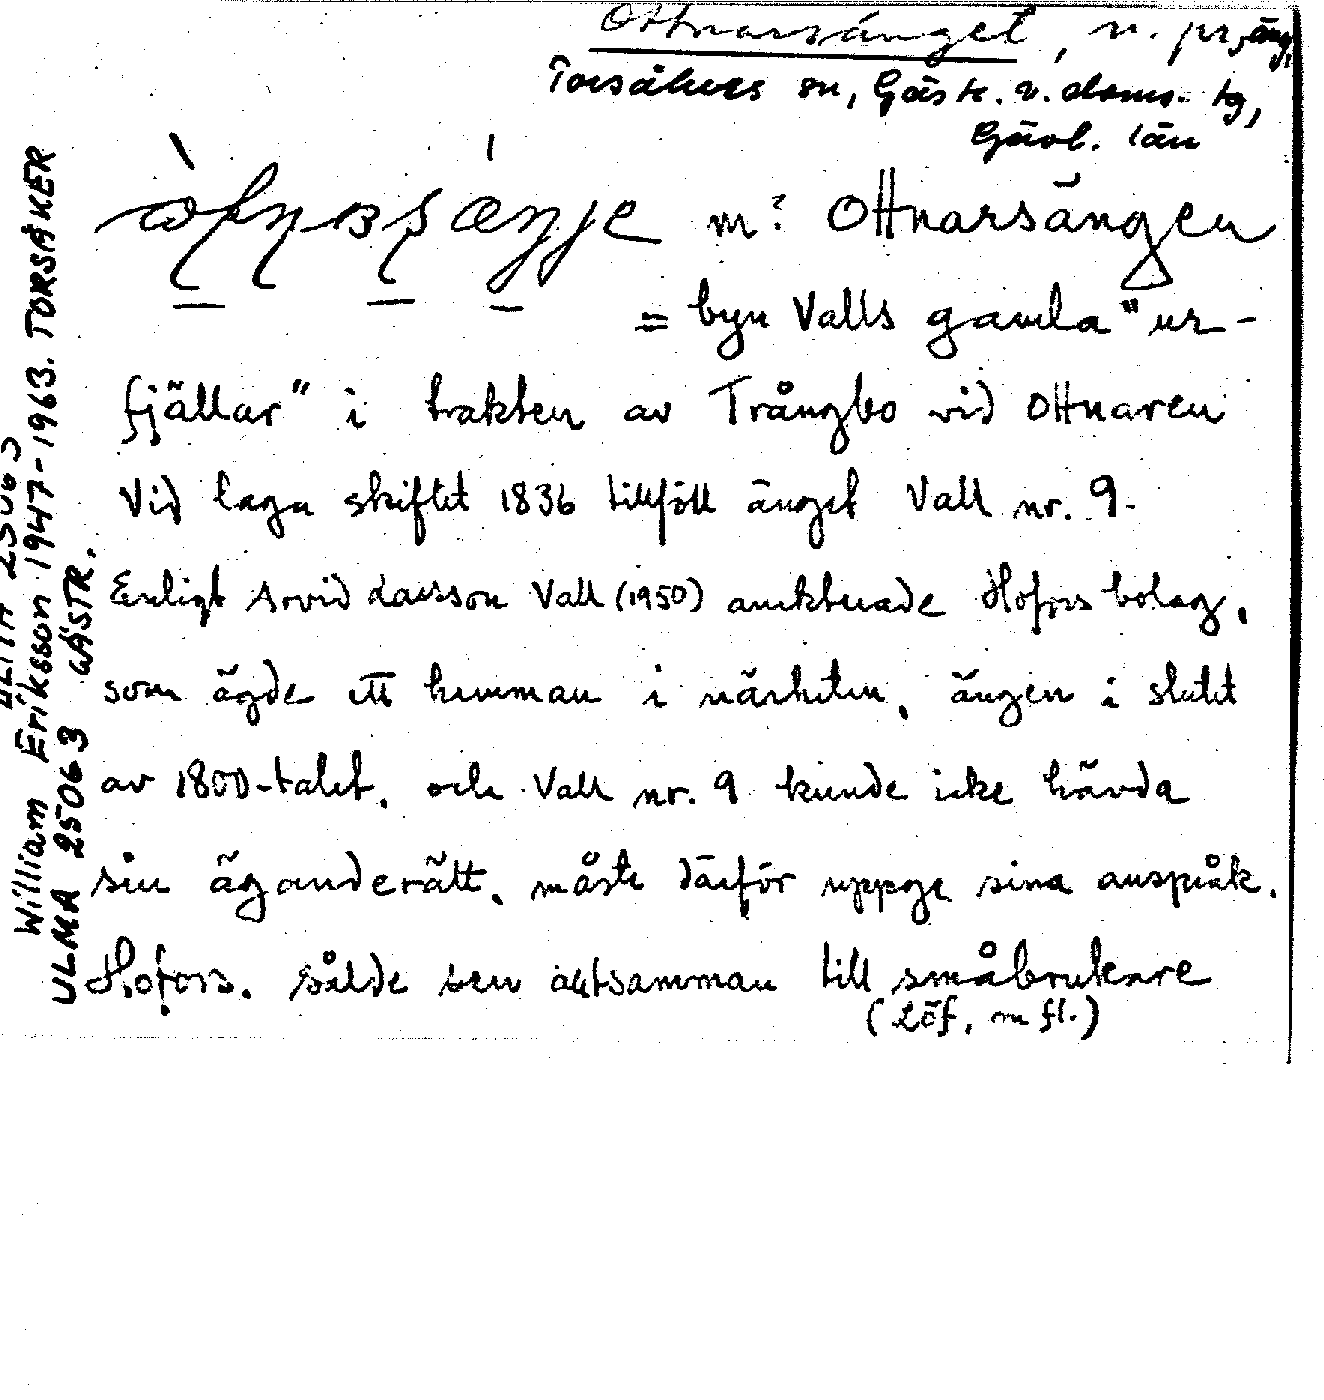 Ottnarsänget, n. pr, äng,
Torsåkers sn, Gästr. v. doms. tg,
Gävl. län
m: Ottnarsängen
= byn Valls gamla "ur-
fjällar" i trakten av Trångbo vid Ottnaren
Vid laga skiftet 1836 tillföll änget Vall nr. 9.
Enligt Arvid Larsson Vall (1950) annkterade Hofors bolag,
som ägde ett hemman i närheten, ängen i slutet
av 1800-talet, och Vall nr. 9 kunde icke hävda
sin äganderätt, måste därför uppge sina anspråk.
Hofors, sålde sen alltsamman till småbrukare
(Löf, m fl.)
William Eriksson 1947-1963. TORSÅKER
ULMA 25063 GÄSTR.